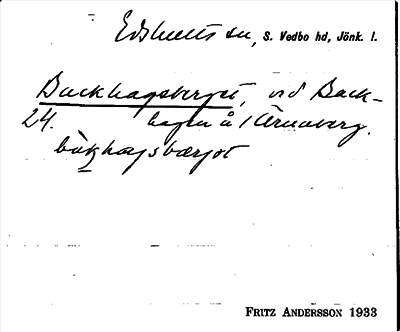 Edshults sn, S. Vedbo hd, Jönk. l.
Backhagsberget, vid Back-
24. hagen å / Ärnaberg.
bàkhagsbærjət
FRITZ ANDERSSON 1933